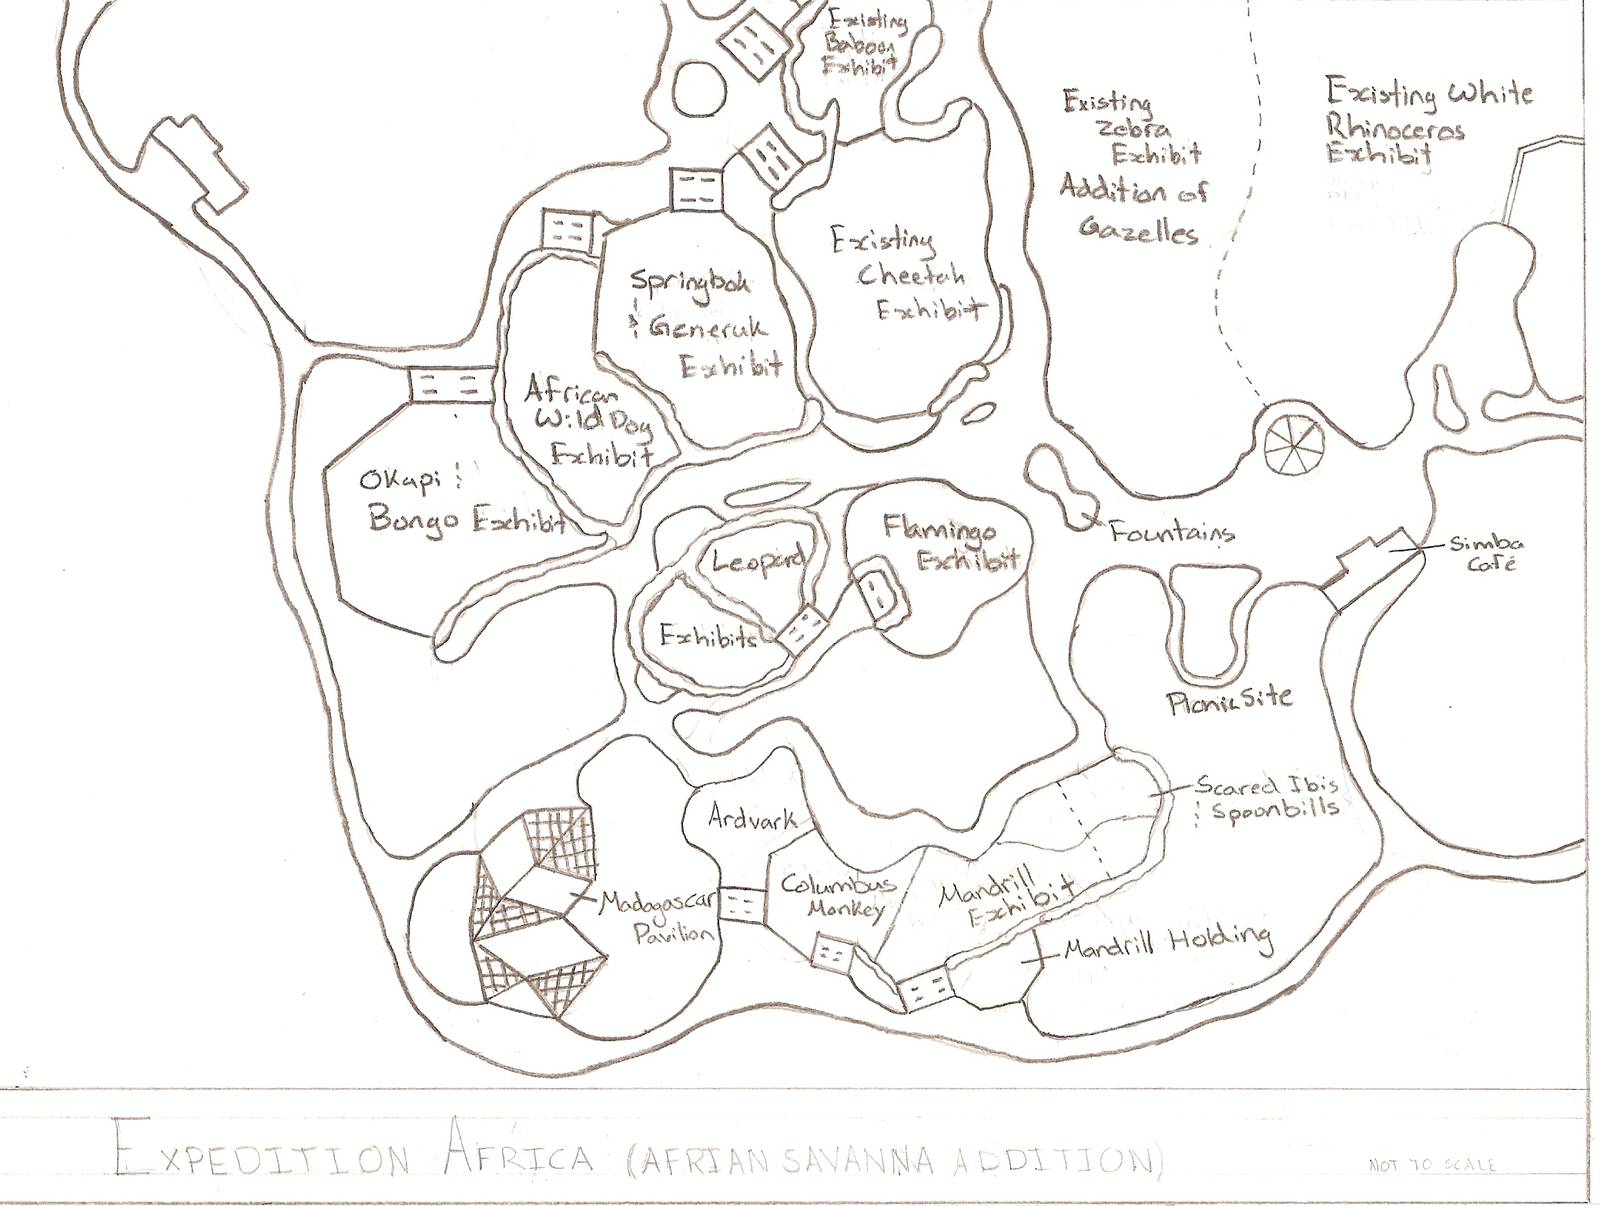 Existing
Baboon
Exhibit
Existing
Zebra
Exhibit
Addition of
Gazelles
Existing White
Rhinoceros
Exhibit
Springbok
& Generuk
Exhibit
Existing
Cheetah
Exhibit
African
Wild Dog
Exhibit
Okapi &
Bongo Exhibit
Leopard
Exhibits
Flamingo
Exhibit
Fountains
Simba
Café
Picnic Site
Scared Ibis
& Spoonbills
Ardvark
Columbus
Monkey
Mandrill
Exhibit
Madagascar
Pavilion
Mandrill Holding
EXPEDITION AFRICA (AFRIAN SAVANNA ADDITION)
NOT TO SCALE